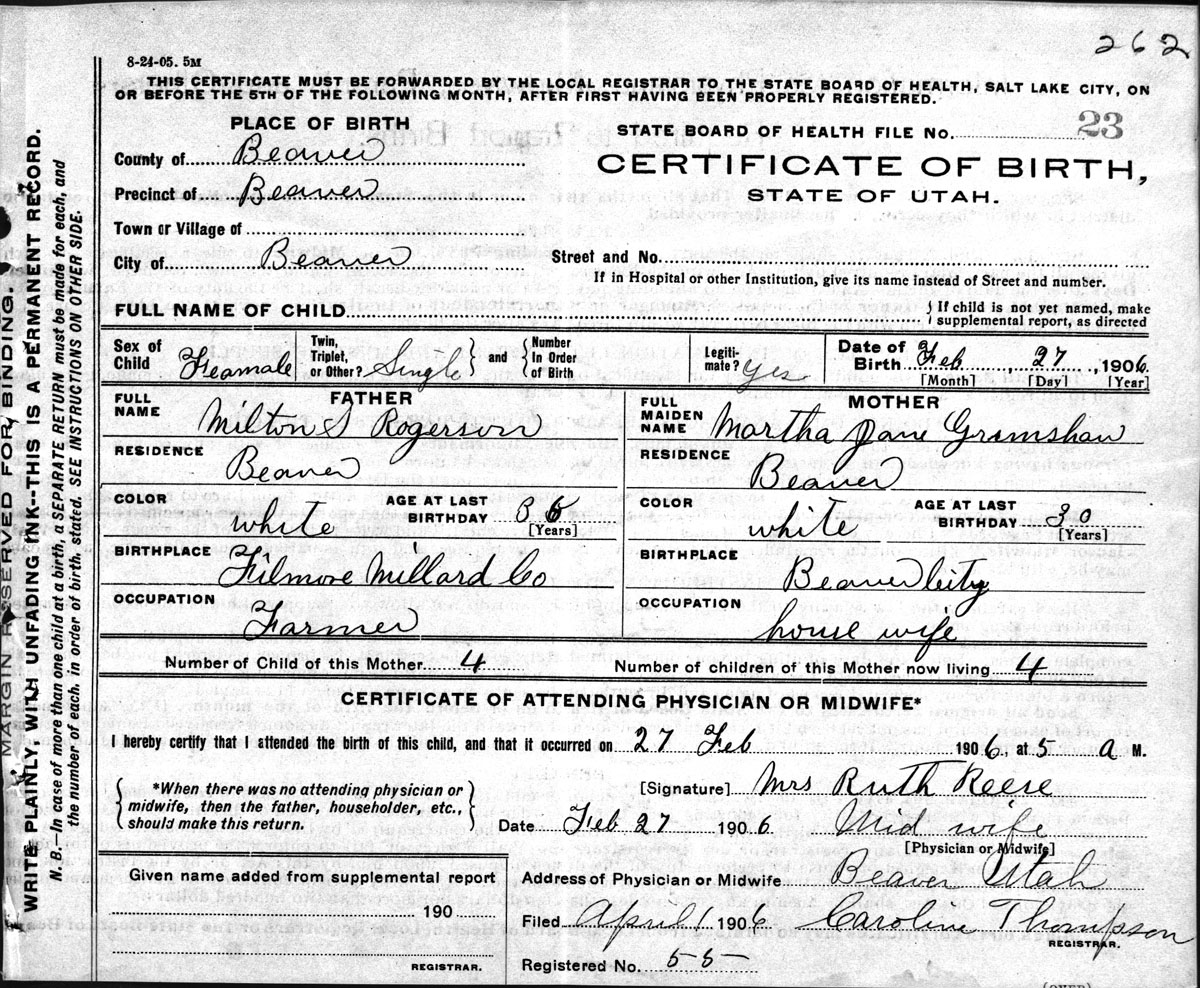 262
8-24-05. 5M
THIS CERTIFICATE MUST BE FORWARDED BY THE LOCAL REGISTRAR TO THE STATE BOARD OF HEALTH, SALT LAKE CITY, ON
OR BEFORE THE 5TH OF THE FOLLOWING MONTH, AFTER FIRST HAVING BEEN PROPERLY REGISTERED.
PLACE OF BIRTH
STATE BOARD OF HEALTH FILE NO. 23
County of Beaver
CERTIFICATE OF BIRTH,
Precinct of Beaver
STATE OF UTAH.
Town or Village of
City of Beaver
Street and No.
If in Hospital or other Institution, give its name instead of Street and number.
FULL NAME OF CHILD
If child is not yet named, make
supplemental report, as directed
Sex of
Child Feamale
Twin,
Triplet,
or Other? Single
and
Number
In Order
of Birth
Legiti-
mate? Yes
Date of
Birth Feb, 27, 1906.
[Month] [Day] [Year]
FATHER
FULL
NAME Milton S Rogerson
RESIDENCE
Beaver
COLOR
white
AGE AT LAST
BIRTHDAY 36
[Years]
BIRTHPLACE
Filmore Millard Co
OCCUPATION
Farmer
MOTHER
FULL
MAIDEN
NAME Martha Jane Grimshaw
RESIDENCE
Beaver
COLOR
white
AGE AT LAST
BIRTHDAY 30
[Years]
BIRTHPLACE
Beaver City
OCCUPATION
house wife
Number of Child of this Mother 4
Number of children of this Mother now living 4
CERTIFICATE OF ATTENDING PHYSICIAN OR MIDWIFE*
I hereby certify that I attended the birth of this child, and that it occurred on 27 Feb 1906, at 5 a M.
*When there was no attending physician or
midwife, then the father, householder, etc.,
should make this return.
[Signature] Mrs Ruth Reese
Date Feb 27 1906 Mid wife
[Physician or Midwife]
Given name added from supplemental report
190
REGISTRAR.
Address of Physician or Midwife Beaver Utah
Filed April 1 1906 Caroline Thompson
REGISTRAR.
Registered No. 55
(OVER)
MARGIN RESERVED FOR BINDING.
WRITE PLAINLY, WITH UNFADING INK--THIS IS A PERMANENT RECORD.
N. B.—In case of more than one child at a birth, a SEPARATE RETURN must be made for each, and
the number of each, in order of birth, stated. SEE INSTRUCTIONS ON OTHER SIDE.